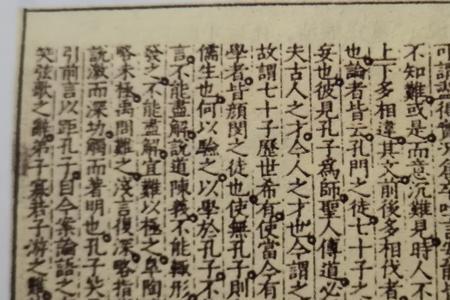 不知難或是而意沉難見時人不
上下多相違其文前後多相伐者
也論者皆云孔門之徒七十子之
妄也彼見孔子為師聖人傳道必
夫古人之才今人之才也今謂之
故謂七十子歷世希有使當今有
學者皆顏閔之徒也使無孔子則
儒生也何以驗之以學於孔子不
言不能盡解說道陳義不能輒形
發之不能盡解宜難以極之皋陶
略未極禹問難之淺言復深略指
說激而深切觸而著明也孔子笑
引前言以距孔子自今案論語之
笑弦歌之難子游